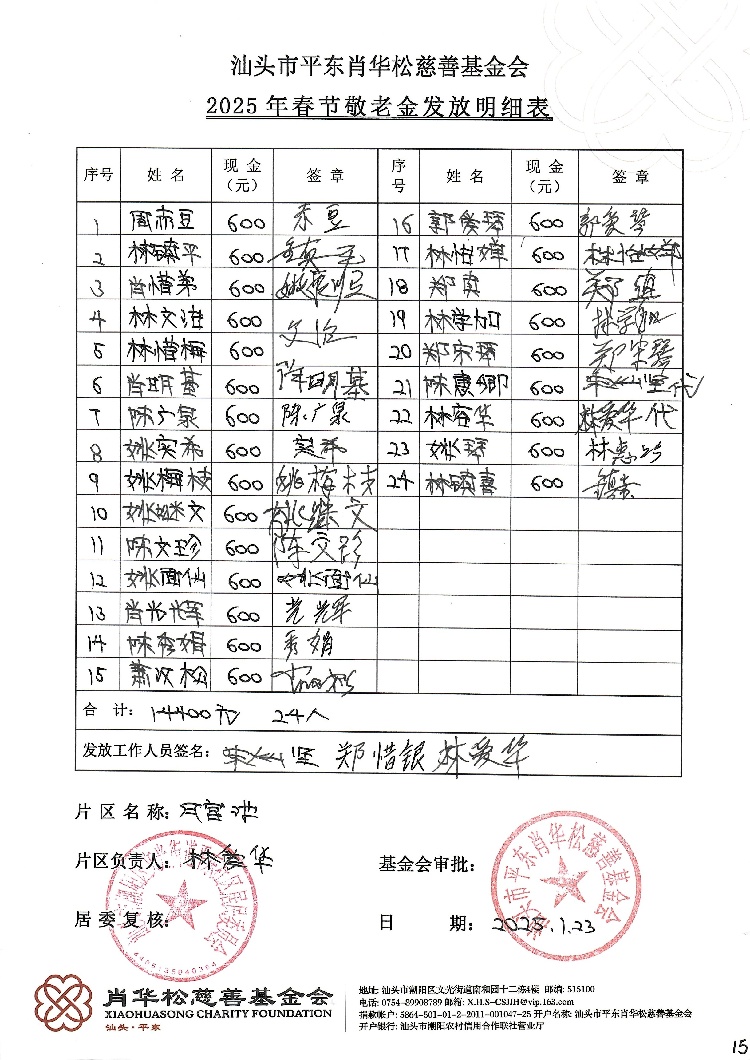 汕头市平东肖华松慈善基金会
2025年春节敬老金发放明细表
序号 姓名 现金(元) 签章 序号 姓名 现金(元) 签章
1 周赤豆 600 赤豆 16 郭爱琴 600 郭爱琴
2 林镇平 600 17 林怡婵 600 林怡婵
3 肖惜弟 600 18 郑真 600
4 林文治 600 文治 19 林学加 600
5 林惜梅 600 20 600
6 肖明基 600 明基 21 陈惠卿 600 坚代
7 陈广泉 600 陈广泉 22 林容华 600 林爱华代
8 姚奕希 600 奕希 23 姚琴 600 林惠
9 姚梅枝 600 姚梅枝 24 林镇喜 600 镇喜
10 姚继文 600 姚继文
11 陈文珍 600 陈文珍
12 姚面仙 600 姚面仙
13 肖光辉 600 光辉
14 陈秀娟 600 秀娟
15 萧汉松 600
合计: 14400元 24人
发放工作人员签名: 坚 郑惜银 林爱华
片区名称:
片区负责人: 林爱华 基金会审批:
居委复核: 日期: 2025.1.23
汕头市平东肖华松慈善基金会
肖华松慈善基金会
XIAOHUASONG CHARITY FOUNDATION
汕头·平东
地址: 汕头市潮阳区文光街道南和园十二栋4梯 邮编: 515100
电话: 0754-89908789 邮箱: X.H.S-CSJJH@vip.163.com
捐款帐户: 5864-501-01-2-2011-001047-25 开户名称: 汕头市平东肖华松慈善基金会
开户银行: 汕头市潮阳农村信用合作联社营业厅
15